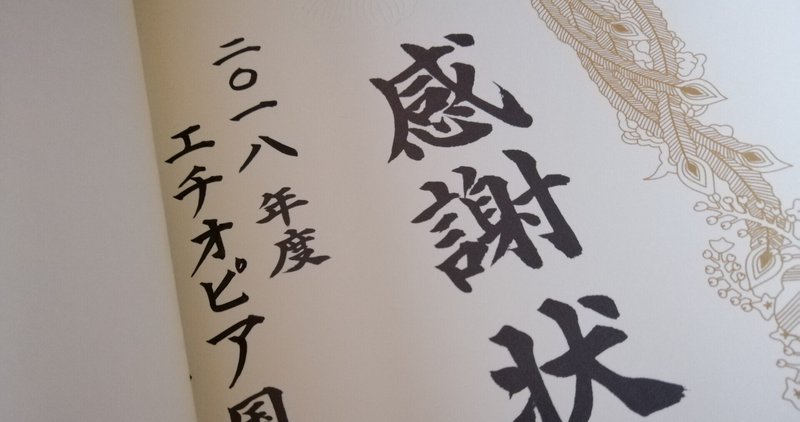 感謝状
二〇一八年度
エチオピア国